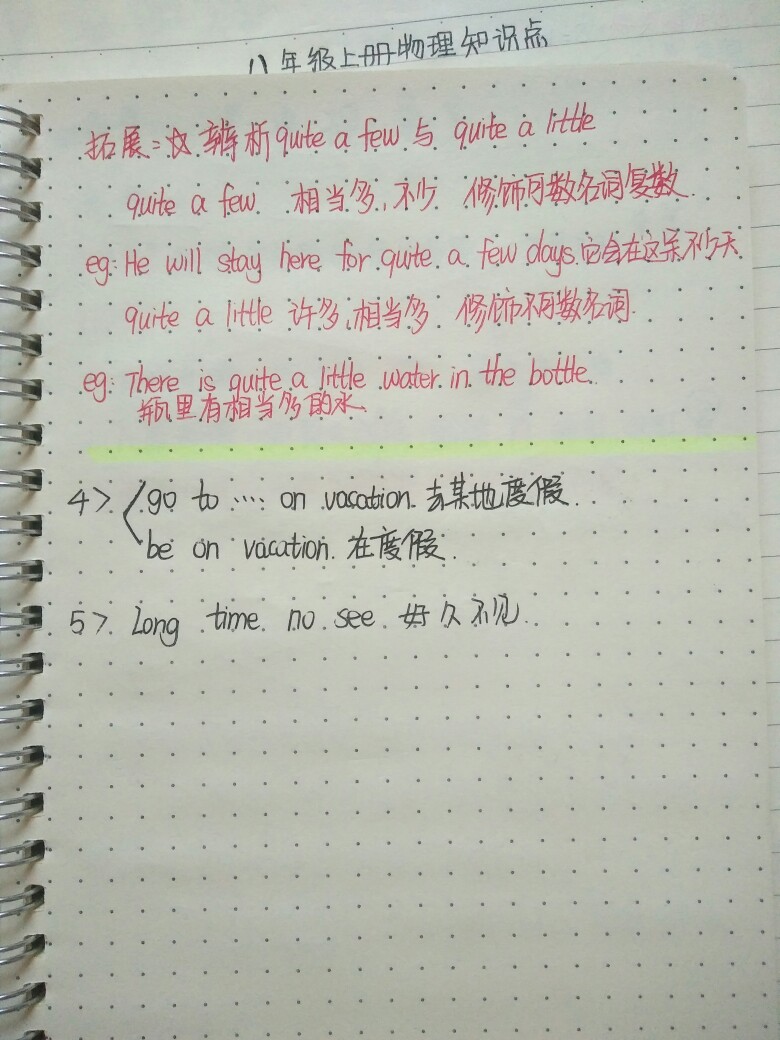 八年级上册物理知识点
拓展: 辨析 quite a few 与 quite a little
quite a few 相当多,不少 修饰可数名词复数
eg: He will stay here for quite a few days. 它会在这呆不少天
quite a little 许多,相当多 修饰不可数名词.
eg: There is quite a little water in the bottle.
瓶里有相当多的水.
4> go to .... on vacation. 去某地度假.
be on vacation. 在度假.
5> Long time no see. 好久不见.